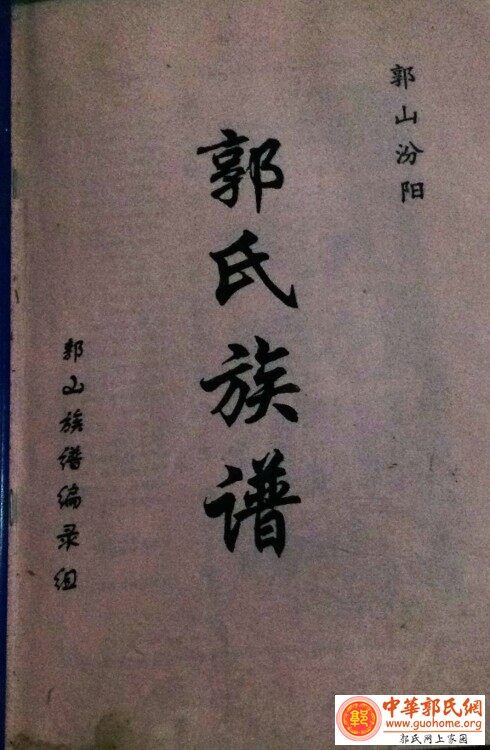 郭山汾阳
郭氏族谱
郭山族谱编录组
中華郭氏網
www.guohome.org
郭氏网上家园
郭